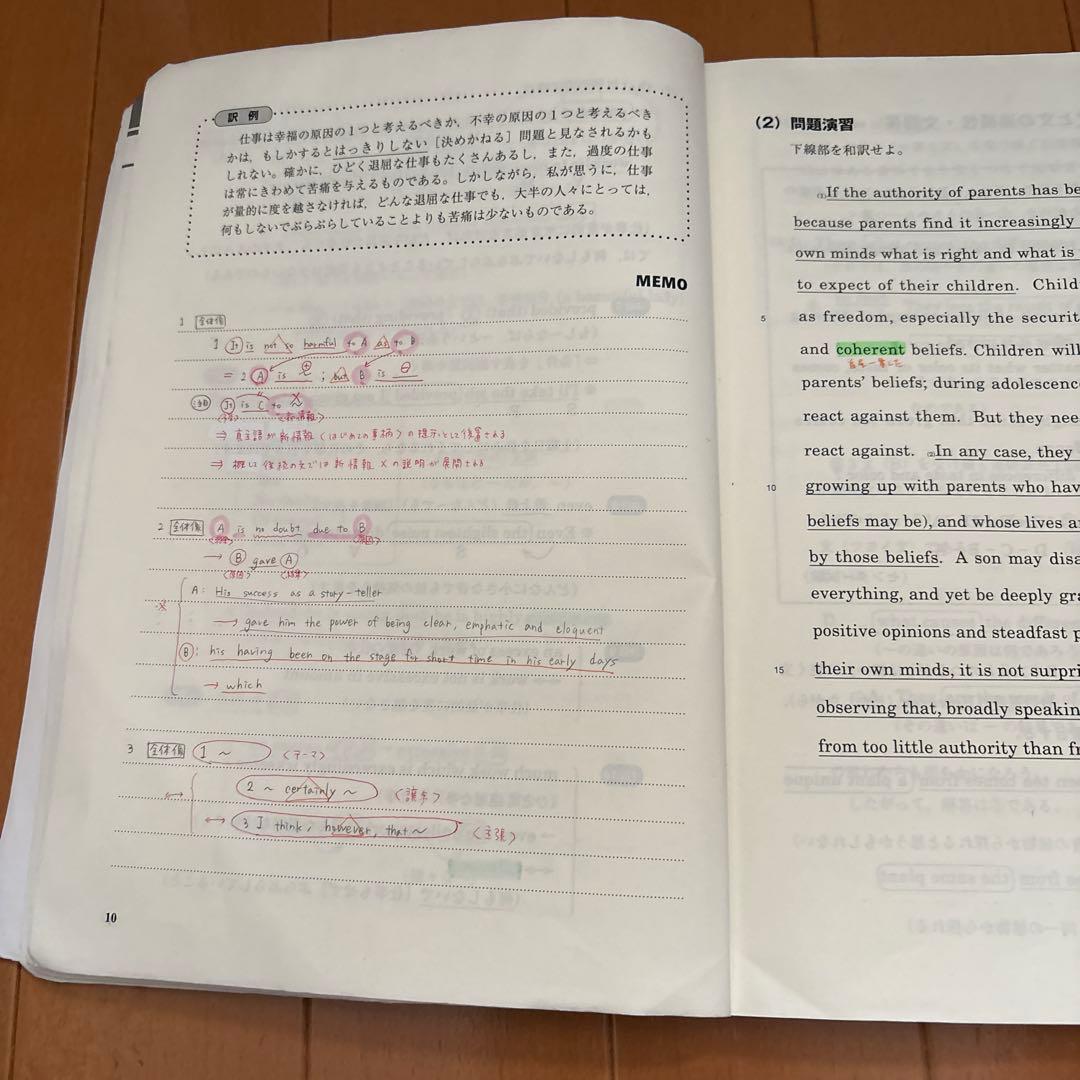 訳例
仕事は幸福の原因の1つと考えるべきか,不幸の原因の1つと考えるべき
かは,もしかするとはっきりしない[決めかねる]問題と見なされるかも
しれない。確かに,ひどく退屈な仕事もたくさんあるし,また,過度の仕事
は常にきわめて苦痛を与えるものである。しかしながら,私が思うに,仕事
が量的に度を越さなければ,どんな退屈な仕事でも,大半の人々にとっては,
何もしないでぶらぶらしていることよりも苦痛は少ないものである。
MEMO
1 全体像
1 It is not so harmful to A as to B
= 2 A is ⊕ ; but B is ⊖
注 It is C to 〜 X
⇒ 真主語が新情報(はじめての事柄)の提示として後置される
⇒ 概して後続の文では新情報Xの説明が展開される
2 全体像 A is no doubt due to B
〈結果〉 〈原因〉
→ B gave A
〈原因〉 〈結果〉
A: His success as a story-teller
→ gave him the power of being clear, emphatic and eloquent
B: his having been on the stage for short time in his early days
→ which
3 全体像 1 ~ 〈テーマ〉
2 ~ certainly ~ 〈譲歩〉
↔ 3 I think, however, that ~ 〈主張〉
10
(2) 問題演習
下線部を和訳せよ。
(1)If the authority of parents has be
because parents find it increasingly
own minds what is right and what is
to expect of their children. Child
5 as freedom, especially the securit
and coherent beliefs. Children will
首尾一貫した
parents' beliefs; during adolescence
react against them. But they nee
react against. (2)In any case, they
10 growing up with parents who hav
beliefs may be), and whose lives a
by those beliefs. A son may disa
everything, and yet be deeply gra
positive opinions and steadfast p
15 their own minds, it is not surpri
observing that, broadly speakin
from too little authority than f